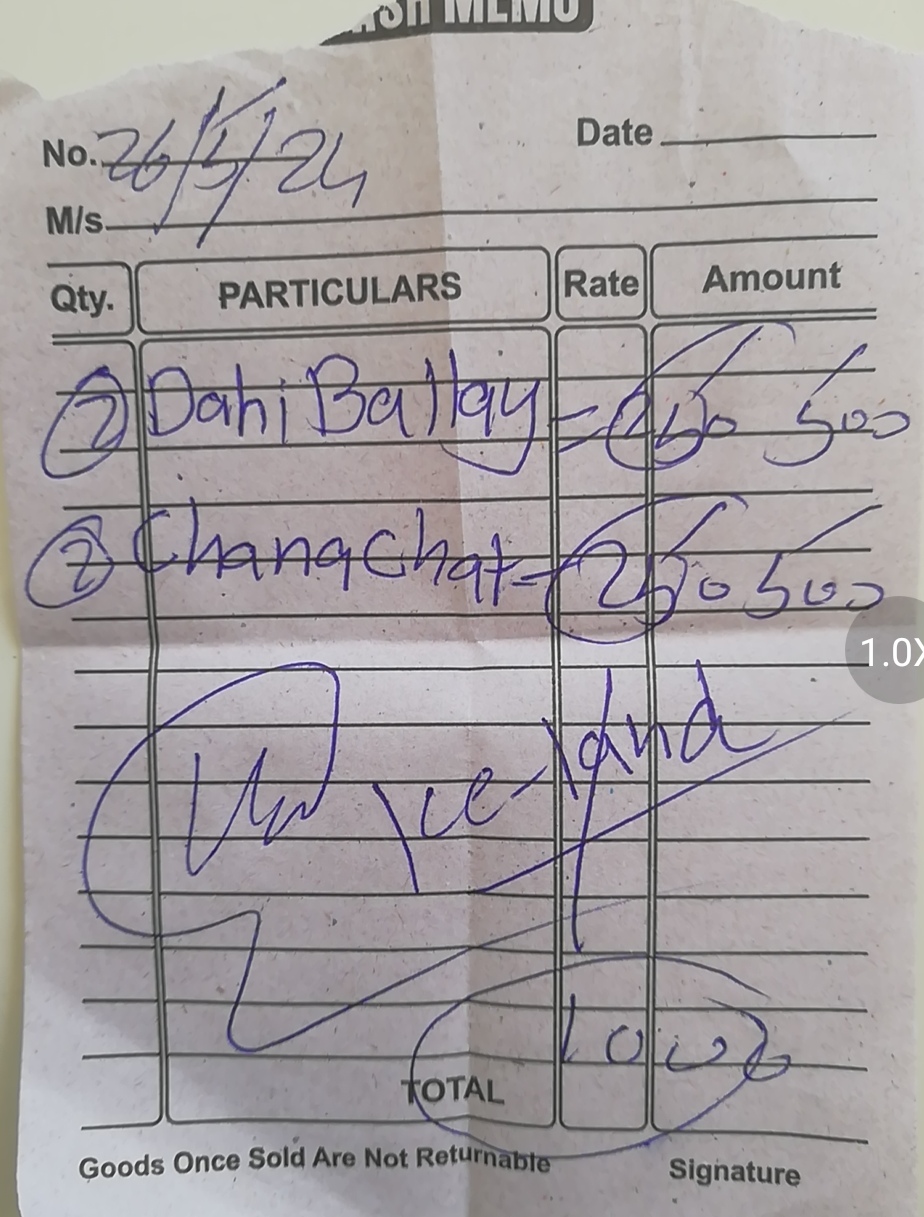 CASH MEMO
No. 26/5/24 Date
M/s.
Qty. PARTICULARS Rate Amount
2 Dahi Ballay = 250 500
2 Chana Chat - 250 500
Ice-land
1000
TOTAL
Goods Once Sold Are Not Returnable
Signature
1.0X